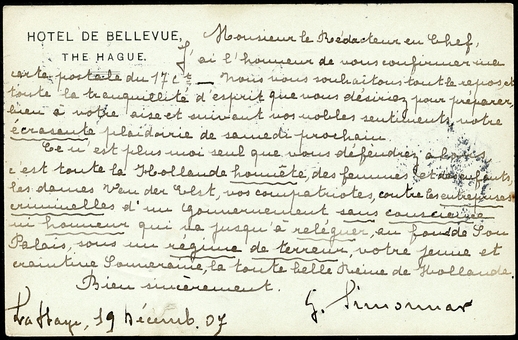 HOTEL DE BELLEVUE,
THE HAGUE.
Monsieur le Rédacteur en Chef,
J'ai l'honneur de vous confirmer ma
carte postale du 17 ct. — Nous vous souhaitons tout le repos et
toute la tranquillité d'esprit que vous désiriez pour préparer,
bien à votre aise et suivant vos nobles sentiments, votre
écrasante plaidoirie de samedi prochain.
Ce n'est plus moi seul que vous défendrez
c'est toute la Hollande honnête, des femmes et des enfants,
les dames Van der Elst, vos compatriotes, contre les entreprises
criminelles d'un Gouvernement sans conscience
ni honneur qui va jusqu'à reléguer, au fond de Son
Palais, sous un régime de terreur, votre jeune et
craintive Souveraine, la toute belle Reine de Hollande.
Bien sincèrement.
La Haye, 19 Décemb. 07